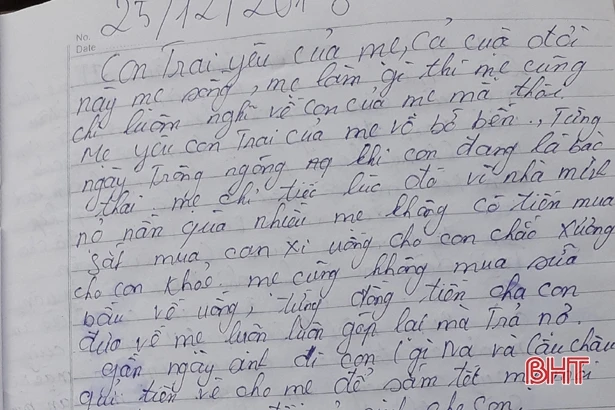 No.
Date
25/12/201
Con Trai yêu của mẹ, cả cuộc đời
này mẹ sống, mẹ làm gì thì mẹ cũng
chỉ luôn nghĩ về con của mẹ mà thôi
Mẹ yêu con Trai của mẹ vô bờ bến., Từng
ngày Trông ngóng khi con đang là bào
thai. mẹ chỉ tiếc lúc đó vì nhà mình
nợ nần quá nhiều mẹ không có tiền mua
sắt mua can xi uống cho con chắc xương
cho con khỏe. mẹ cũng không mua sữa
bầu về uống, từng đồng tiền cha con
đưa về mẹ luôn luôn góp lại mà Trả nợ.
gần ngày sinh con (gì Na và Cậu châu
gửi tiền về cho mẹ để sắm tốt
cho con.
BHT